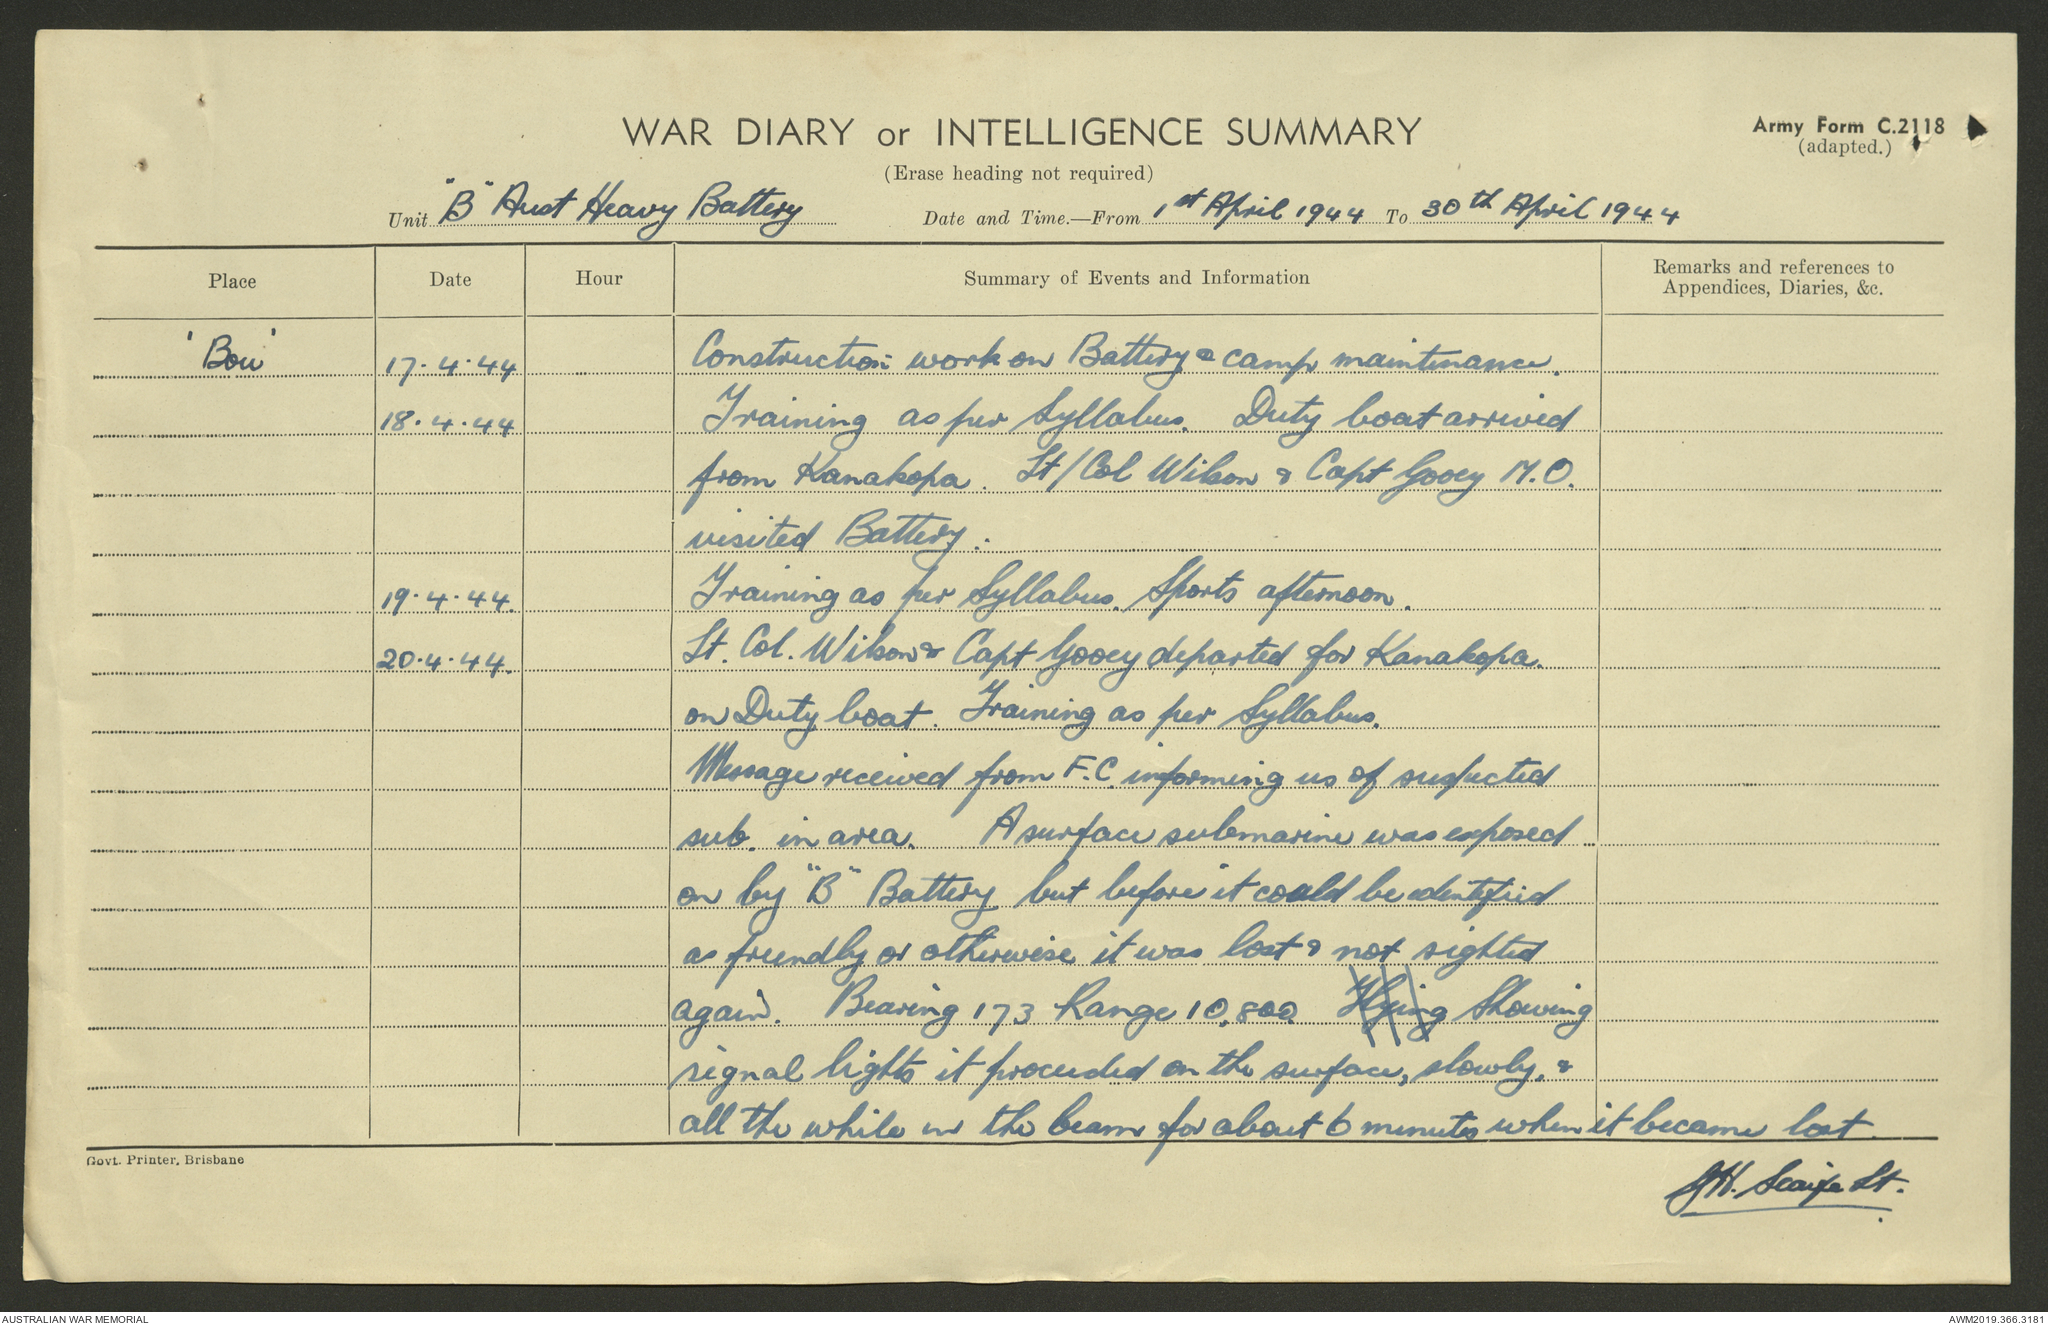 WAR DIARY or INTELLIGENCE SUMMARY
Army Form C.2118
(adapted.)
(Erase heading not required)
Unit "B" Aust Heavy Battery Date and Time.—From 1st April 1944 To 30th April 1944
Place Date Hour Summary of Events and Information Remarks and references to Appendices, Diaries, &c.
'Bou' 17.4.44 Construction work on Battery & camp maintenance.
18.4.44 Training as per Syllabus. Duty boat arrived
from Kanakopa. Lt/Col Wilson & Capt Gooey M.O.
visited Battery.
19.4.44. Training as per Syllabus. Sports afternoon.
20.4.44. Lt. Col. Wilson & Capt Gooey departed for Kanakopa.
on Duty boat. Training as per Syllabus.
Message received from F.C. informing us of suspected
sub. in area. A surface submarine was exposed
on by "B" Battery but before it could be identified
as friendly or otherwise it was lost & not sighted
again. Bearing 173 Range 10,800. Flying Showing
signal lights it proceeded on the surface, slowly, &
all the while in the beam for about 6 minutes when it became lost.
Govt. Printer, Brisbane
Scaife Lt.
AUSTRALIAN WAR MEMORIAL
AWM2019.366.3181